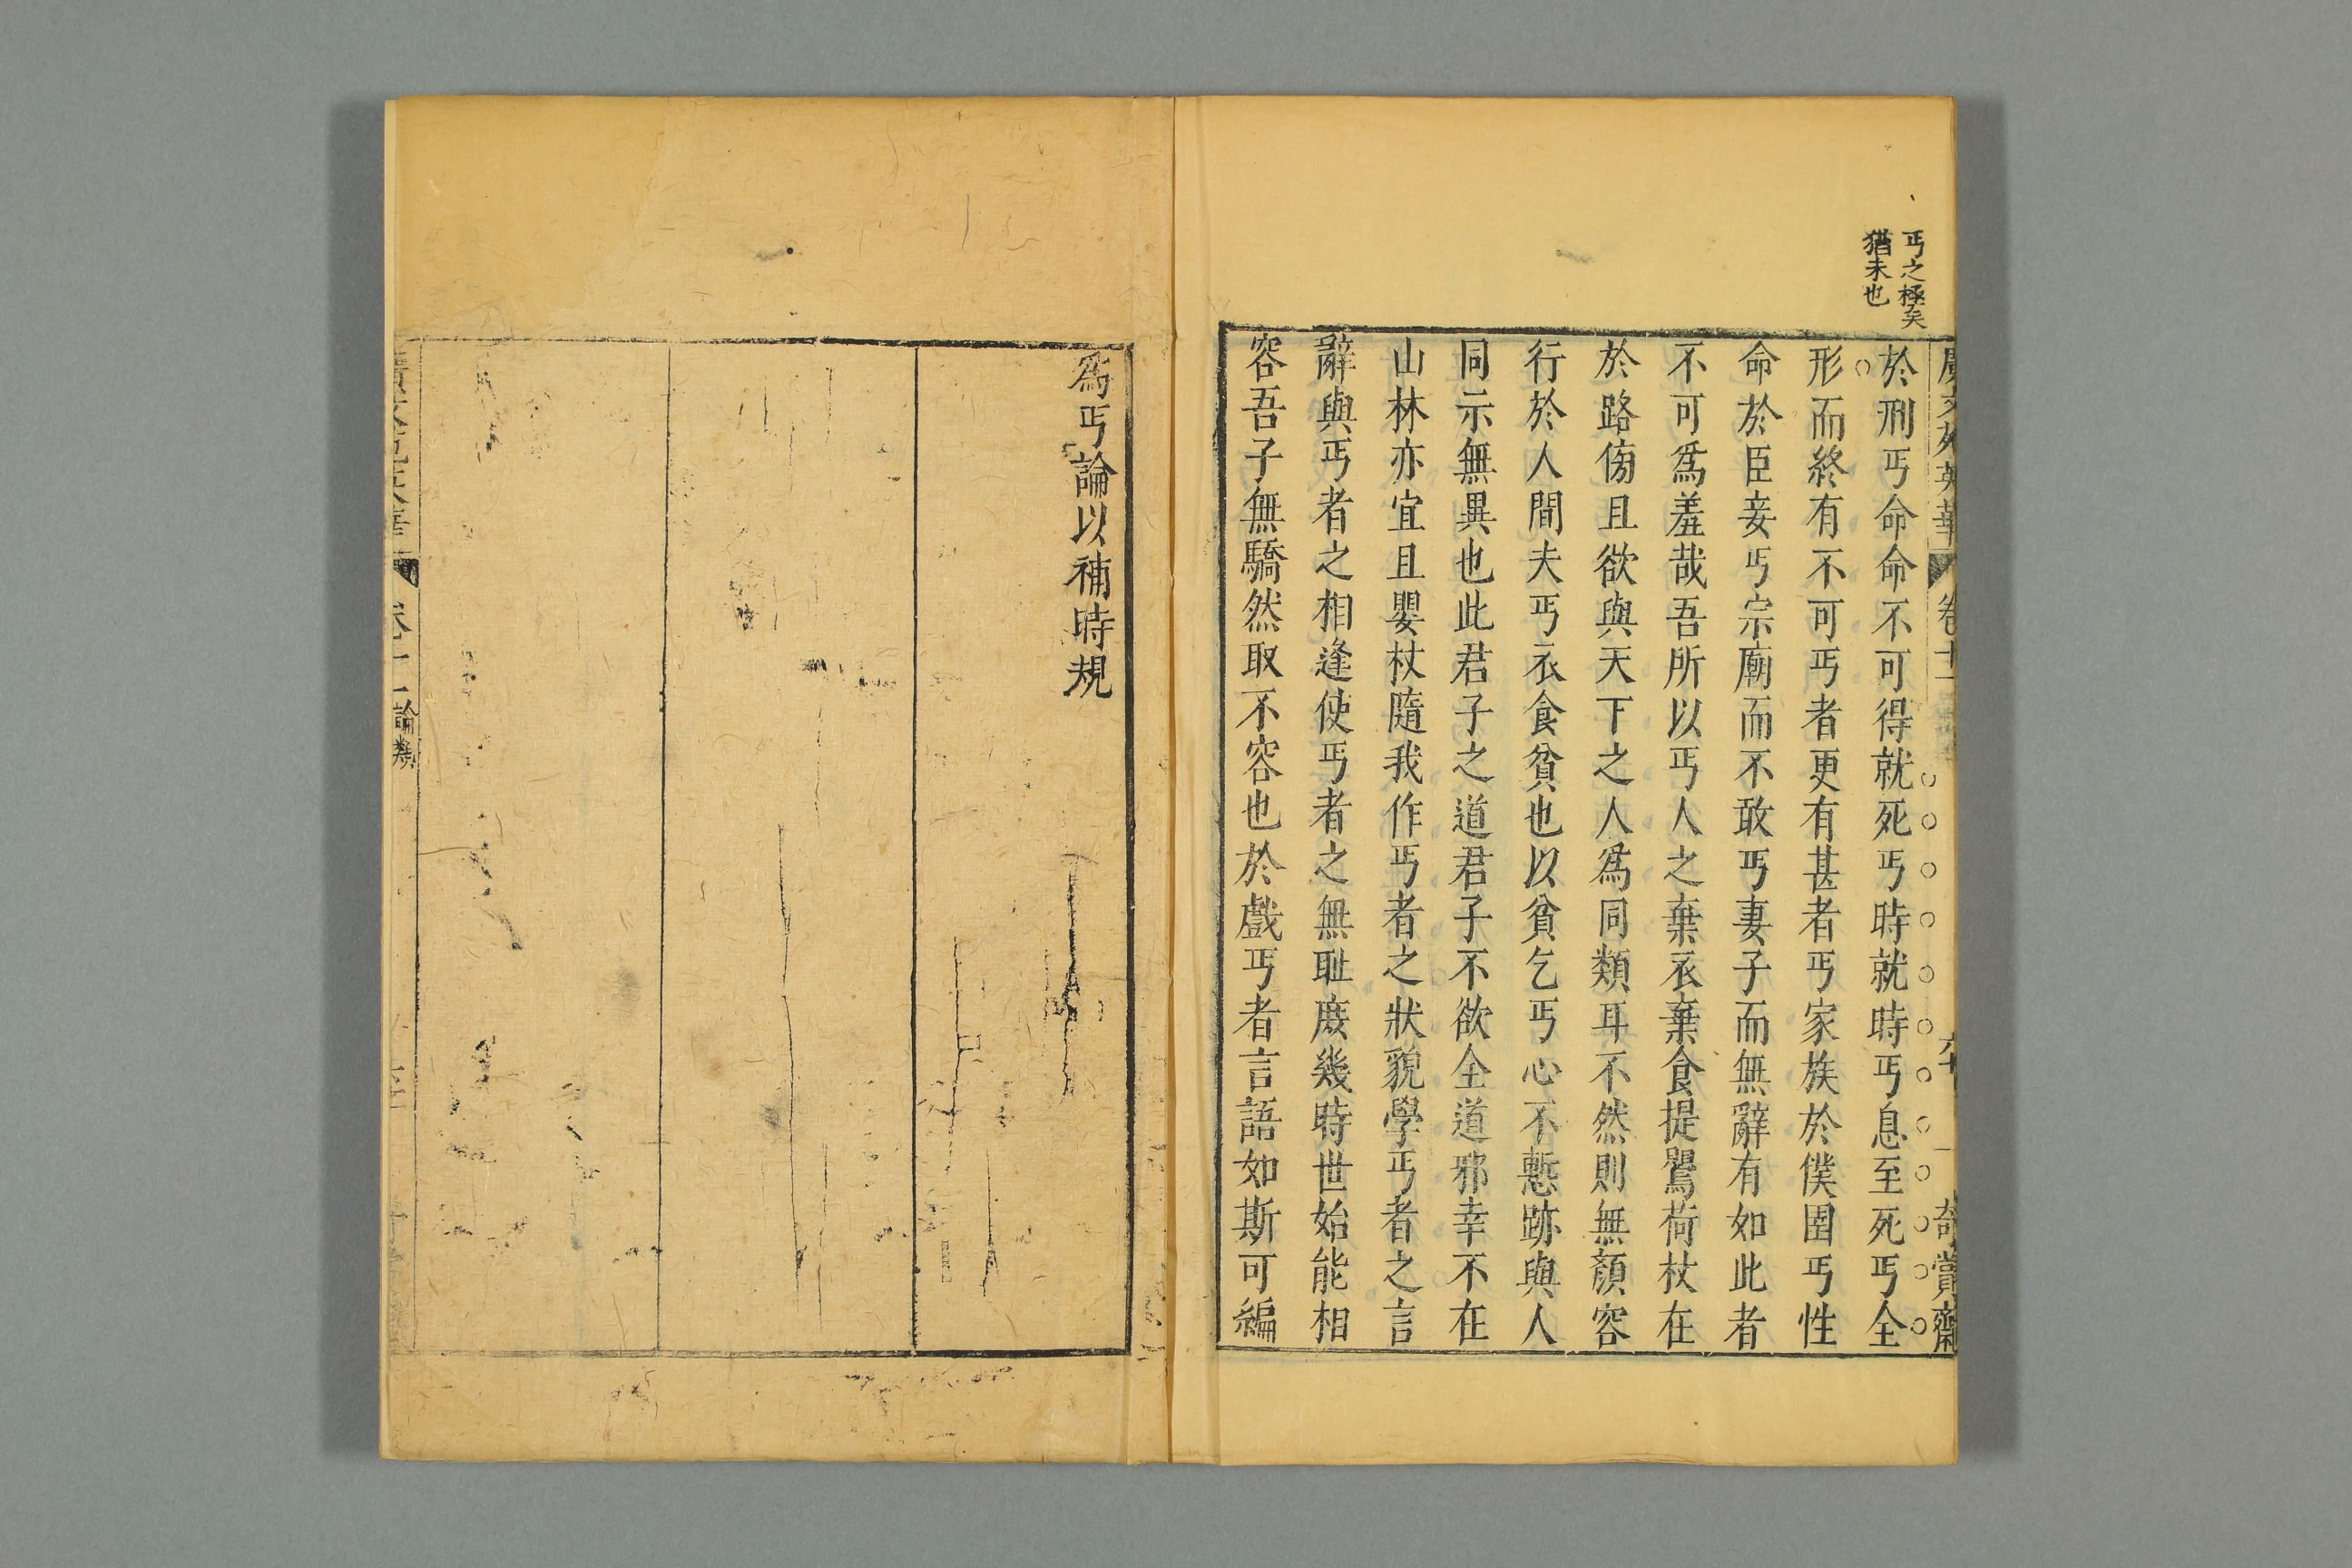 丐之極矣
猶未也
廣文苑英華 卷十一 奇賞齋
於刑丐命命不可得就死丐時就時丐息至死丐全
形而終有不可丐者更有甚者丐家族於僕圉丐性
命於臣妾丐宗廟而不敢丐妻子而無辭有如此者
不可爲羞哉吾所以丐人之棄衣棄食提鴽荷杖在
於路傍且欲與天下之人爲同類耳不然則無顏容
行於人間夫丐衣食貧也以貧乞丐心不慙跡與人
同示無異也此君子之道君子不欲全道邪幸不在
山林亦宜且嬰杖隨我作丐者之狀貌學丐者之言
辭與丐者之相逢使丐者之無耻庶幾時世始能相
容吾子無驕然取不容也於戲丐者言語如斯可編
爲丐論以補時規
論類